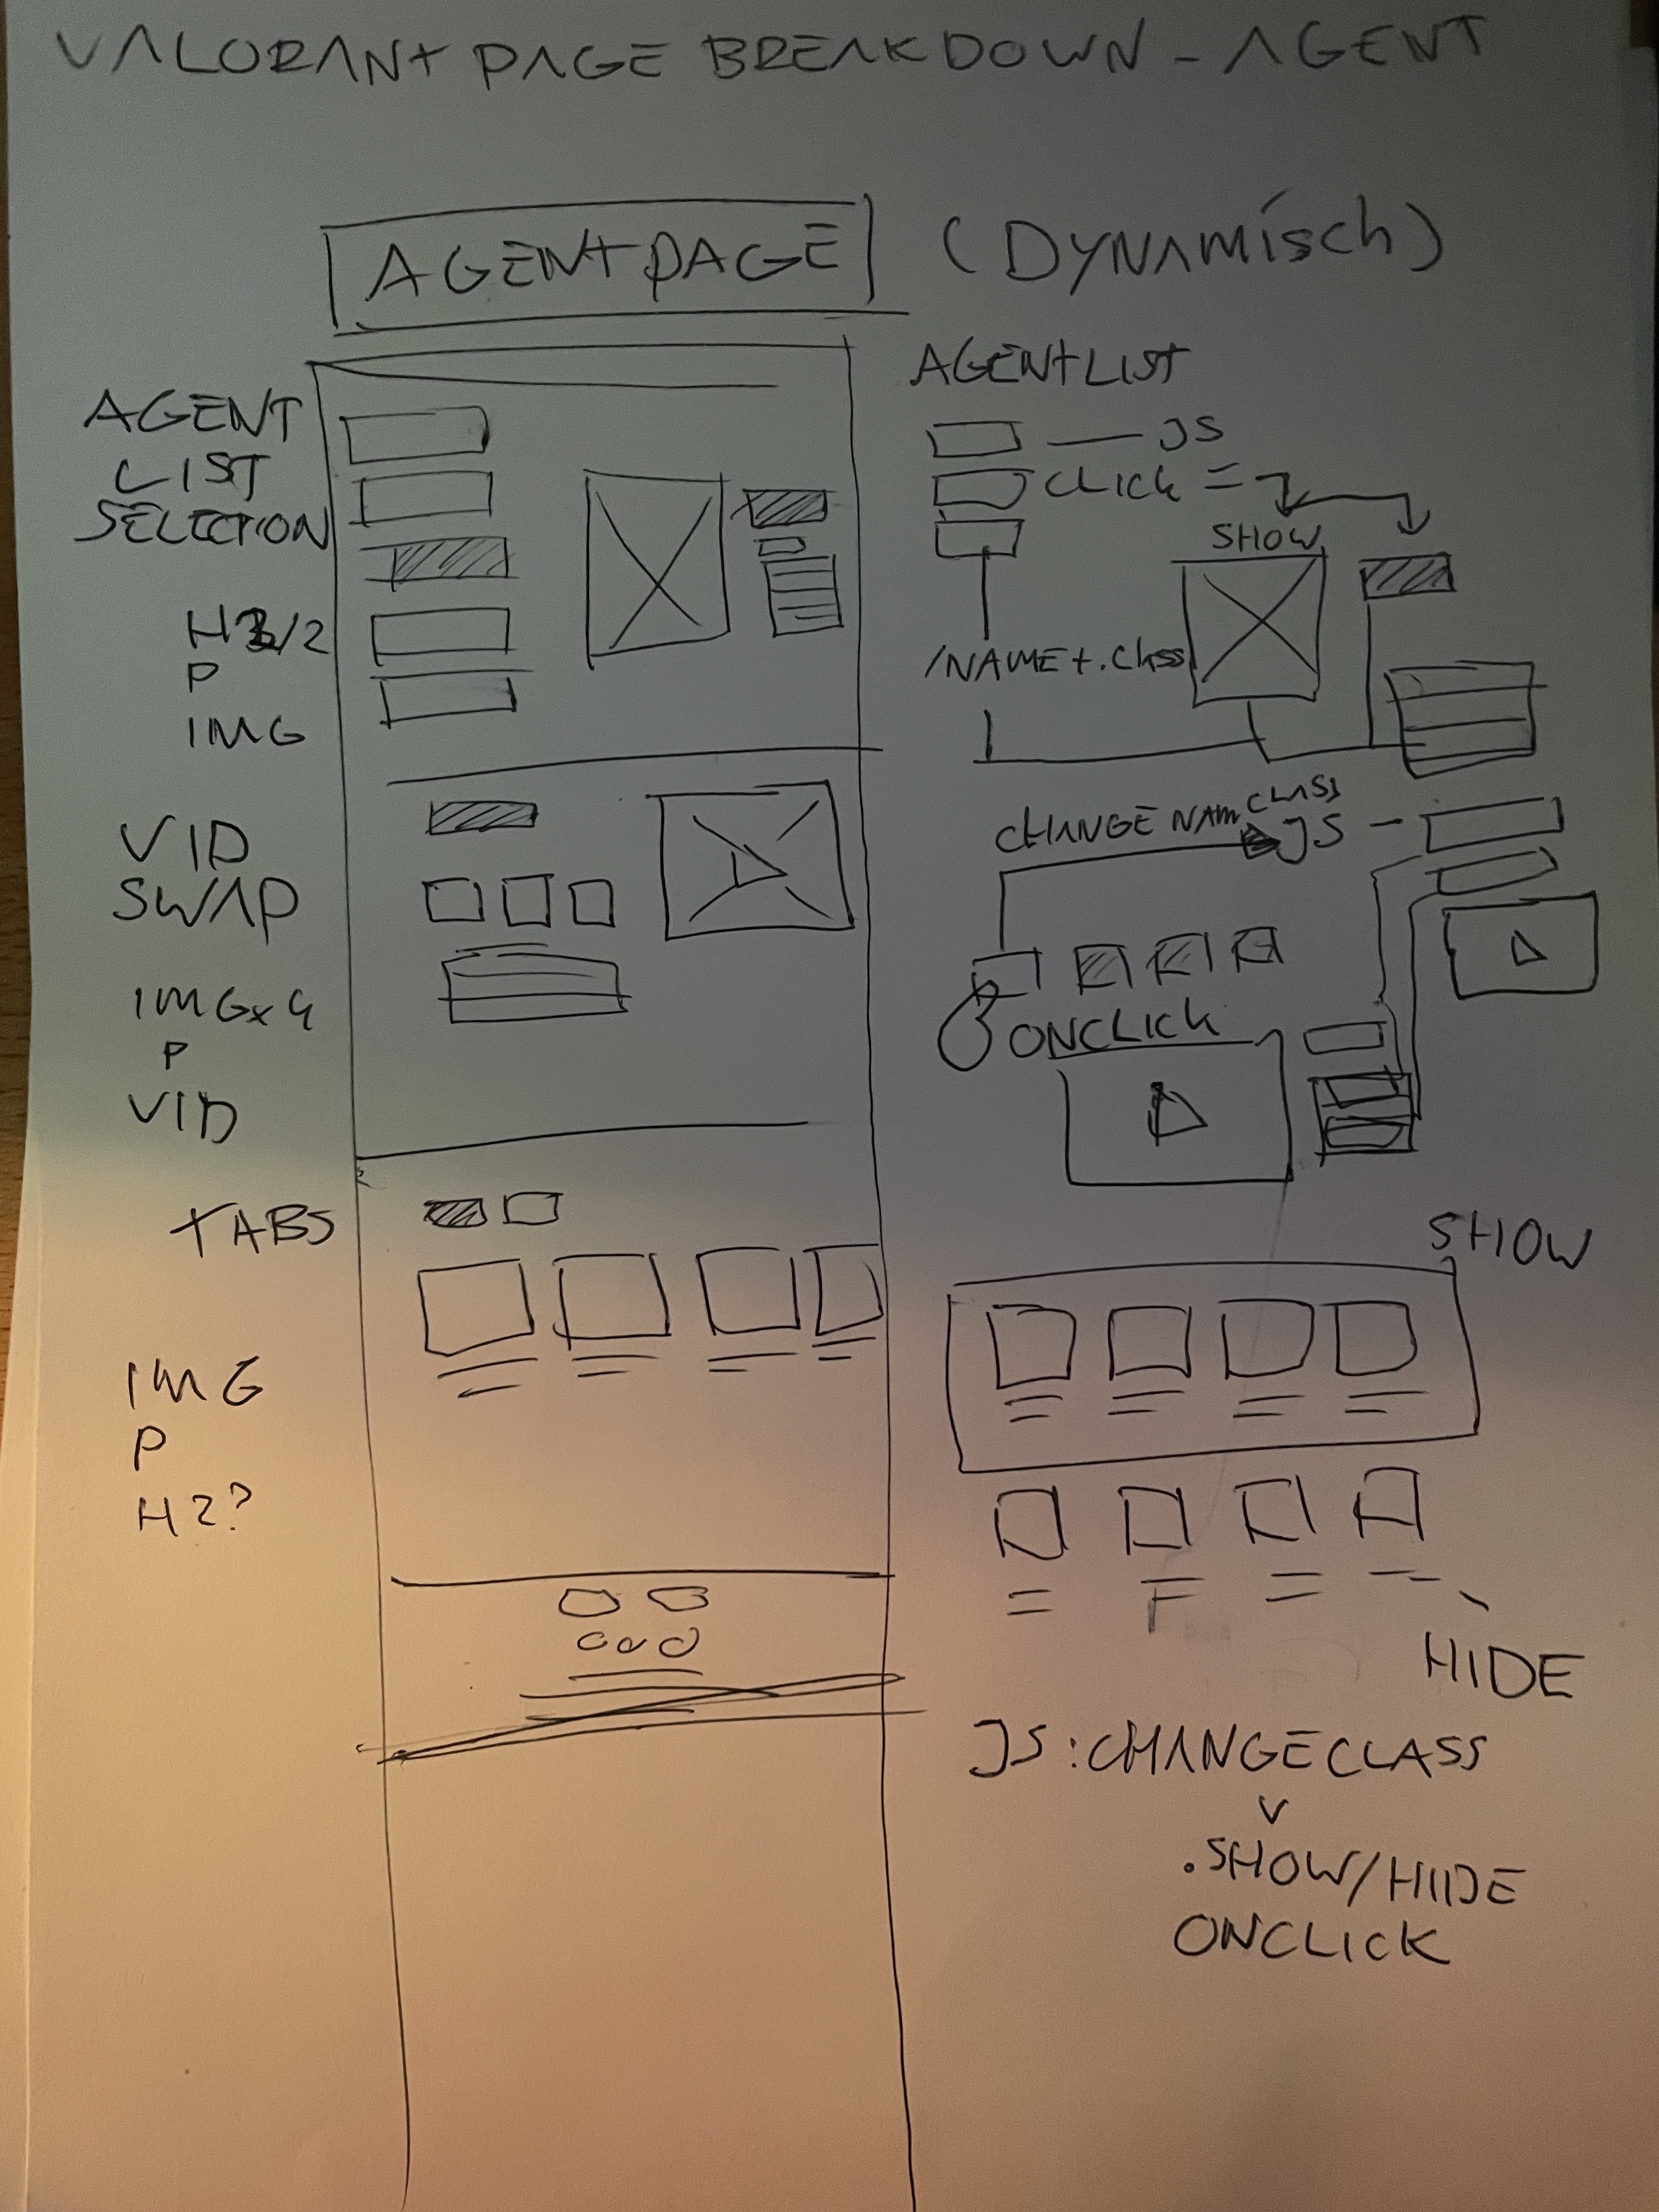 VALORANT PAGE BREAKDOWN - AGENT
AGENT PAGE
(DYNAMISCH)
AGENT
LIST
SELECTION
P
IMG
VID
SWAP
IMGx4
P
VID
TABS
IMG
P
H2?
AGENT LIST
JS
CLICK =
SHOW
/NAME+.Class
CHANGE NAM CLASS
JS -
ONCLICK
SHOW
HIDE
JS:CHANGECLASS
.SHOW/HIDE
ONCLICK